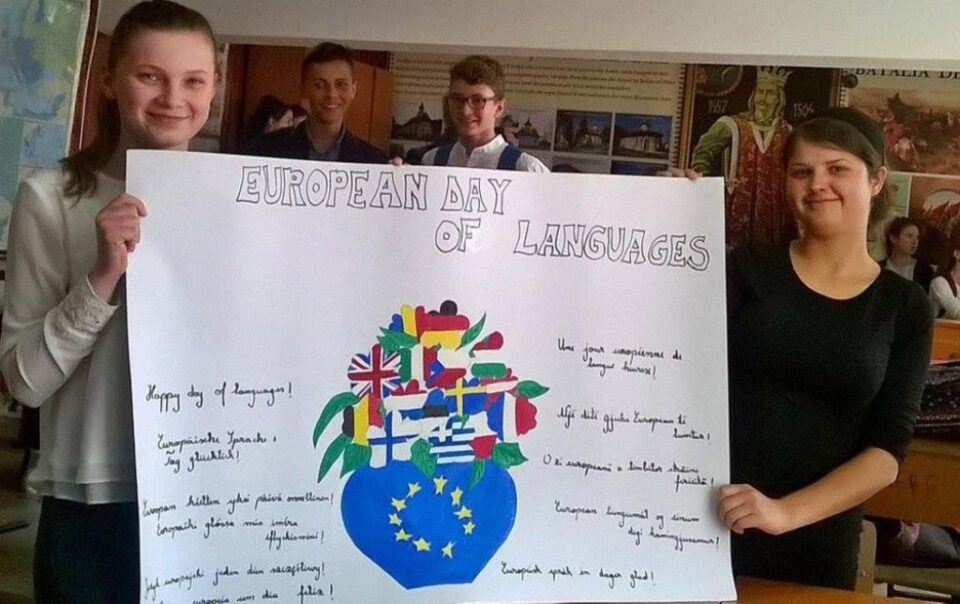 EUROPEAN DAY
OF LANGUAGES
Happy day of languages!
Europäische Sprachs
Tag glücklich!
European kielten yksi päivä onnellinen!
Europaiki glóssa mia iméra
eftychisméni!
Język europejski jeden dzien szczęśliwy!
europeia um dia feliz!
Une jour européenne de
langue heureuse!
Një ditë gjuhe European të
lumtur!
O zi europeană a limbilor străine
fericită!
European tungumál og einum
degi hamingjusamur!
Europäisk språk in dagar glad!
BATALIA DE
1457 1504